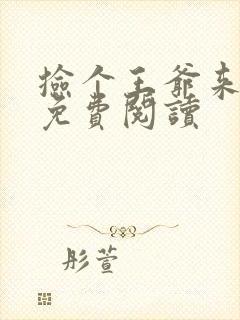 捡个王爷来
免費閱讀
彤萱